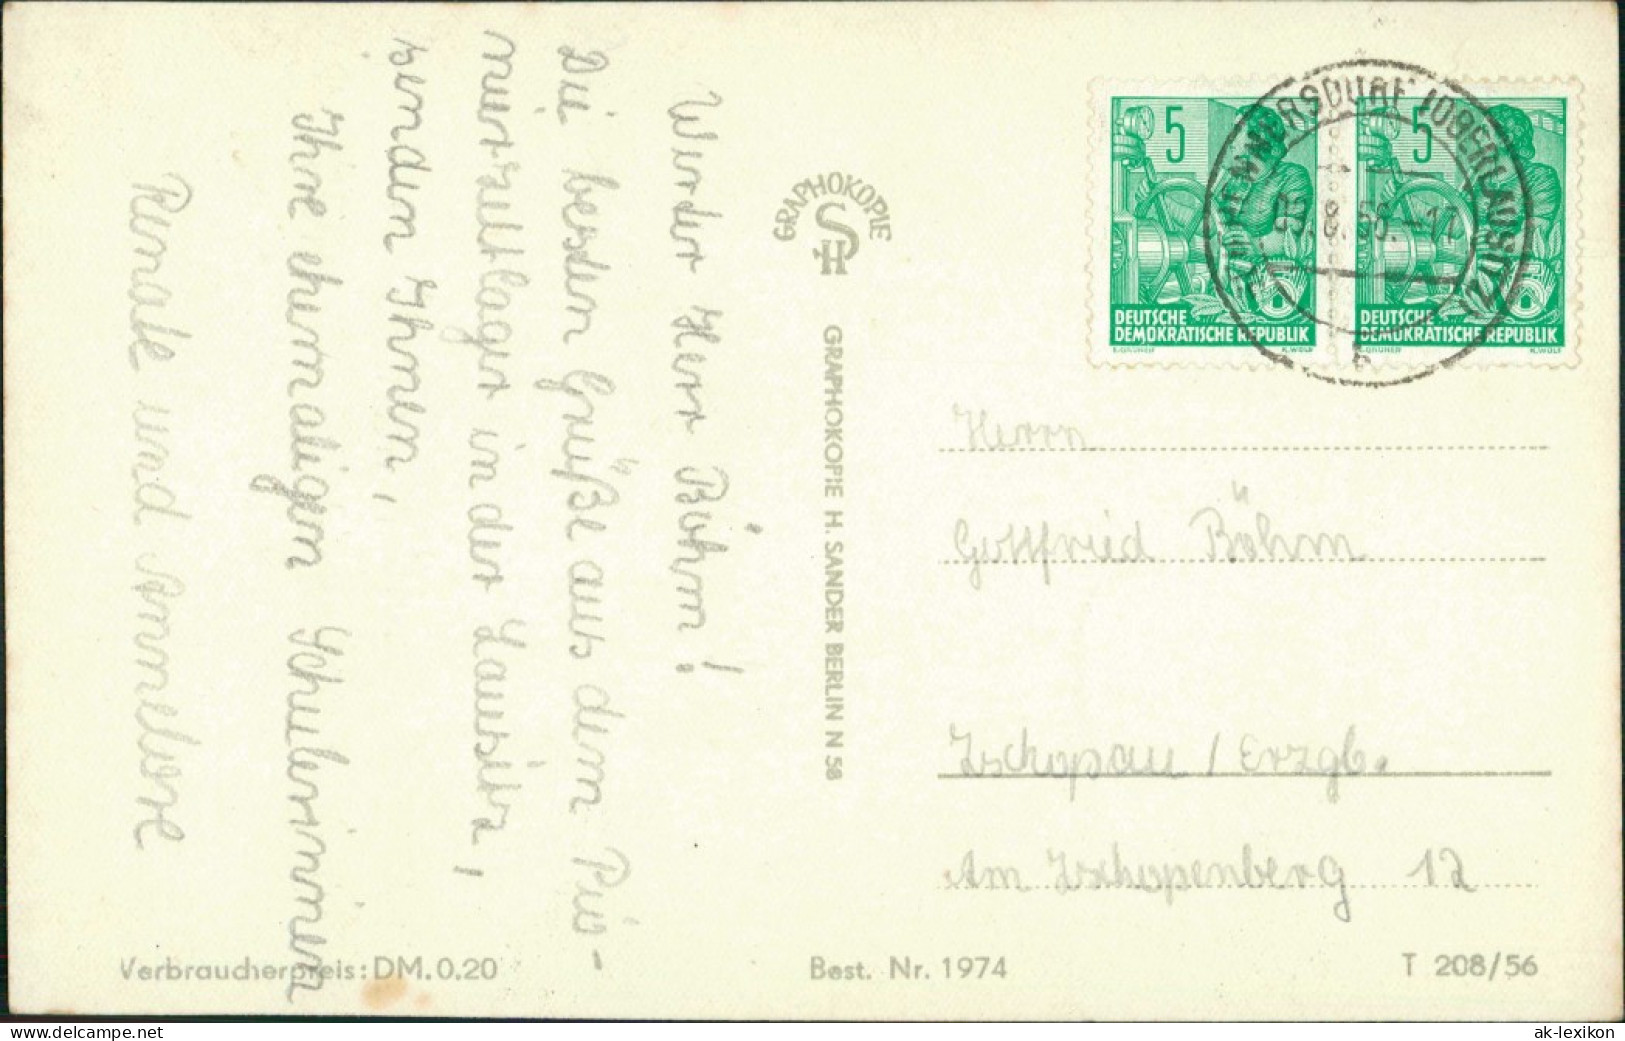 Werter Herr Böhm!
Die besten Grüße aus dem Pio-
nierzeltlager in der Lausitz,
senden Ihnen,
Ihre ehemaligen Schulerinnen
Renate und Anneliese
GRAPHOKOPIE
HS
GRAPHOKOPIE H. SANDER BERLIN N 58
5
DEUTSCHE
DEMOKRATISCHE REPUBLIK
E.GRUNER K.WOLF
5
DEUTSCHE
DEMOKRATISCHE REPUBLIK
E.GRUNER K.WOLF
(OBERLAUSITZ)
b
Herrn
Gottfried Böhm
Zschopau / Erzgb.
Am Zschopenberg 12
Verbraucherpreis: DM.0.20
Best. Nr. 1974
T 208/56
www.ansichtskarten-lexikon.de
ak-lexikon